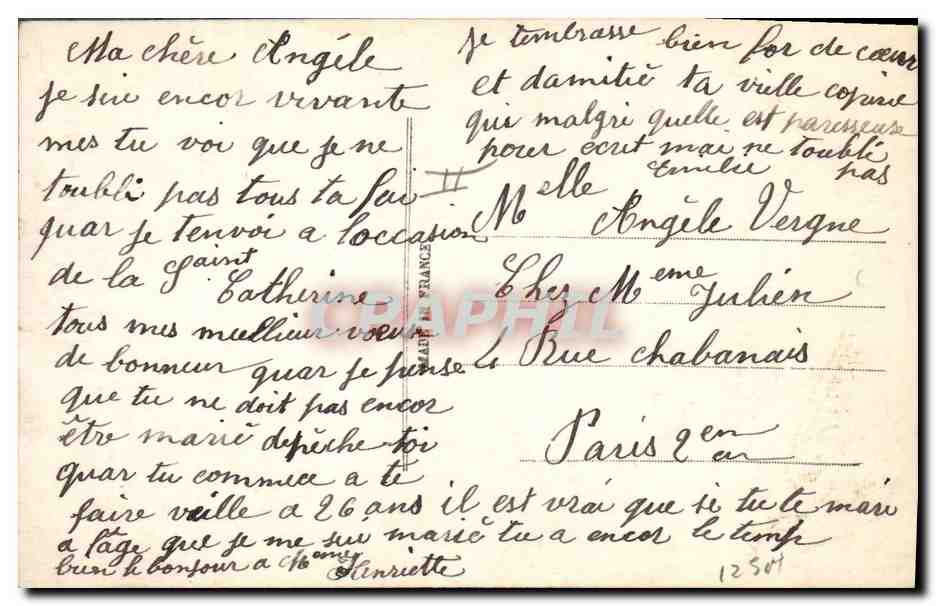 Ma chère Angéle
je sui encor vivante
mes tu voi que je ne
toubli pas tous ta fai
quar je tenvoi a loccasion
de la Saint
Catherine
tous mes meellieur vœux
de bonneur quar je pense
que tu ne doit pas encor
être marié depêche toi
quar tu commece a te
faire vieille a 26 ans il est vrai que si tu te mari
a lâge que je me sui marié tu a encor le temp
bien le bonjour a Meme Henriette
je tembrasse bien for de cœur
et damitié ta vielle copine
qui malgré quelle est paresseuse
pour ecrit mai ne toubli
pas
Emilie
II
Melle Angèle Vergne
Chez Meme Julién
4 Rue chabanais
Paris 2em
ar
MADE IN FRANCE
CPAPHIL
12 Sot